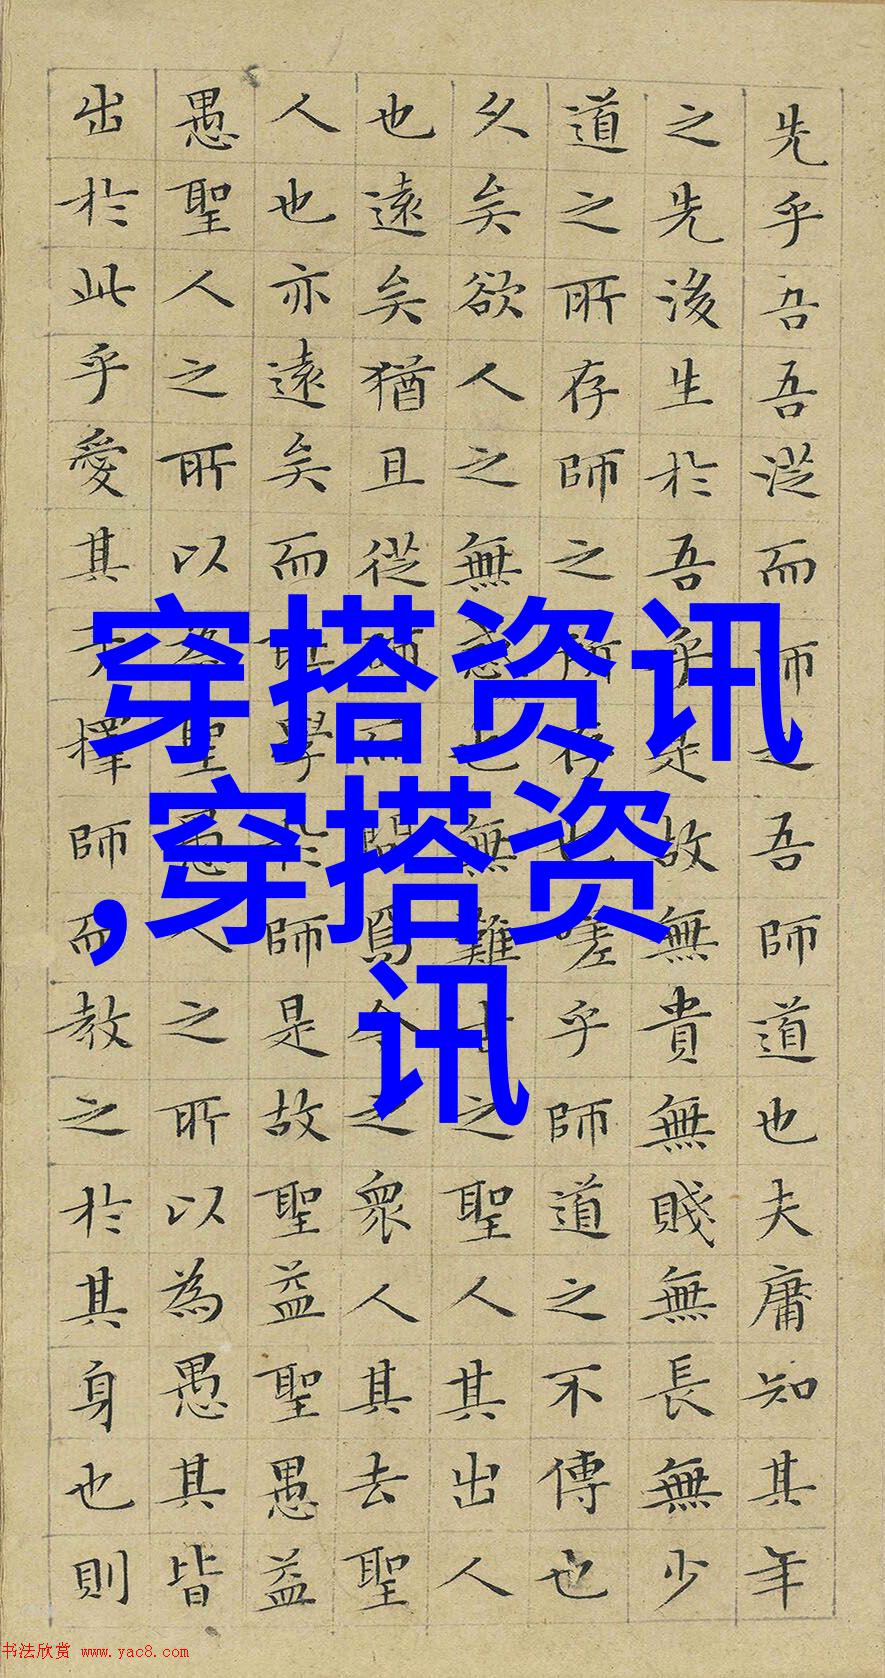 先乎吾吾從而師之吾師道也夫庸知其年
之先後生於吾乎是故無貴無賤無長無少
道之所存師之所存也嗟乎師道之不傳也
久矣欲人之無惑也無難古之聖人其出人
也遠矣猶且從師而問焉今之衆人其去聖
人也亦遠矣而恥學於師是故聖益聖愚益
愚聖人之所以為聖愚人之所以為愚其皆
出於此乎愛其子擇師而教之於其身也則
穿搭资讯
,穿搭资
讯
书法欣赏 www.yac8.com